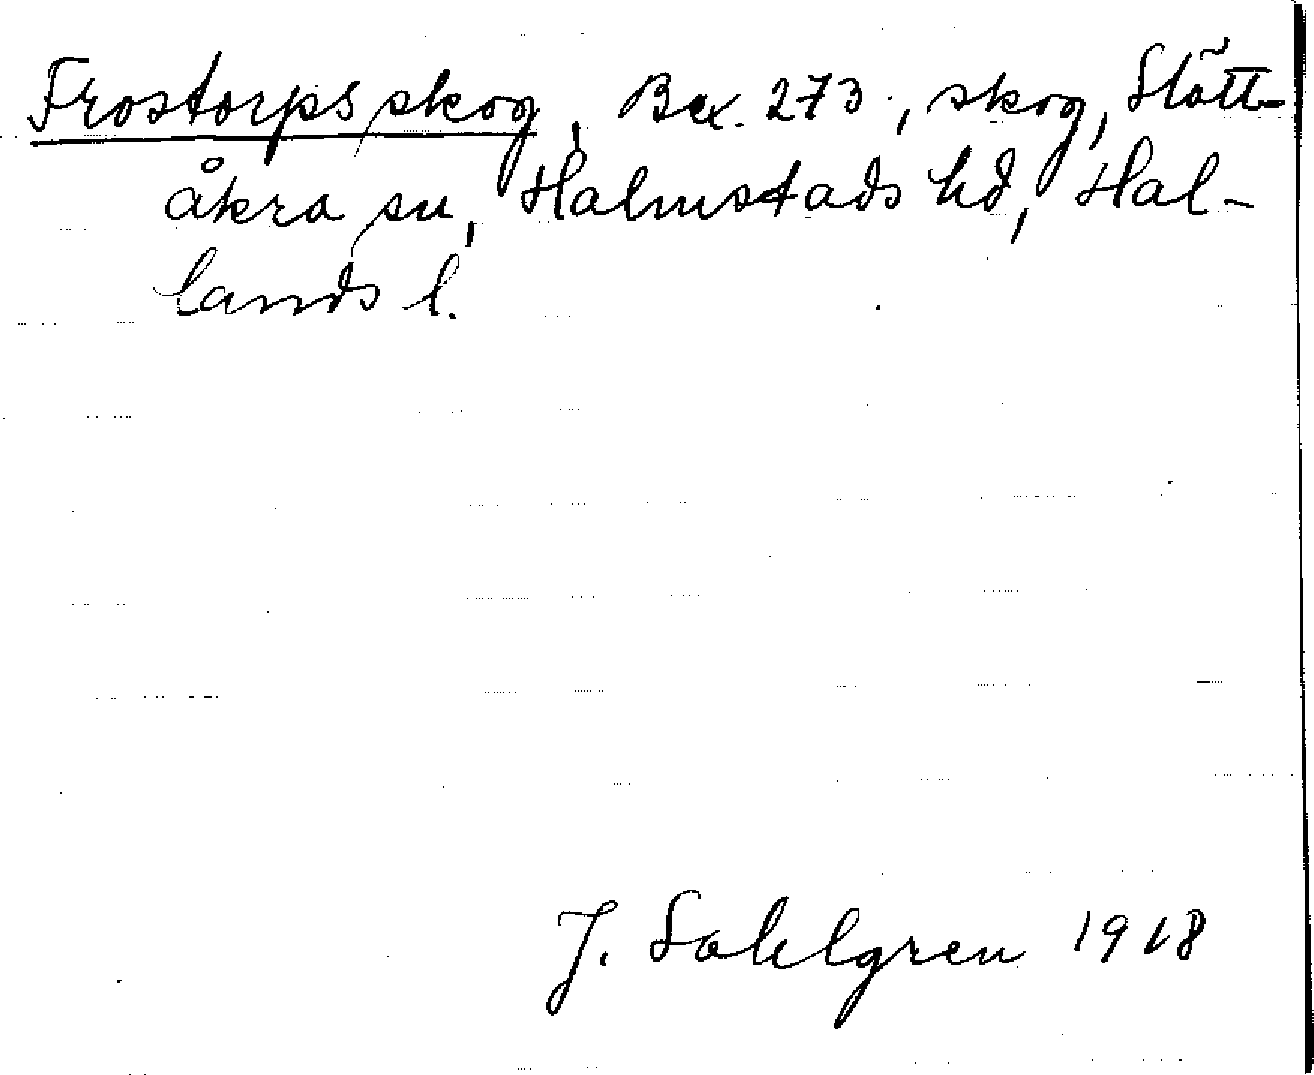 Frostorpsskog, Bex. 273., skog, Slätt-
åkra sn, Halmstads hd, Hal-
lands l.
J. Sahlgren 1918